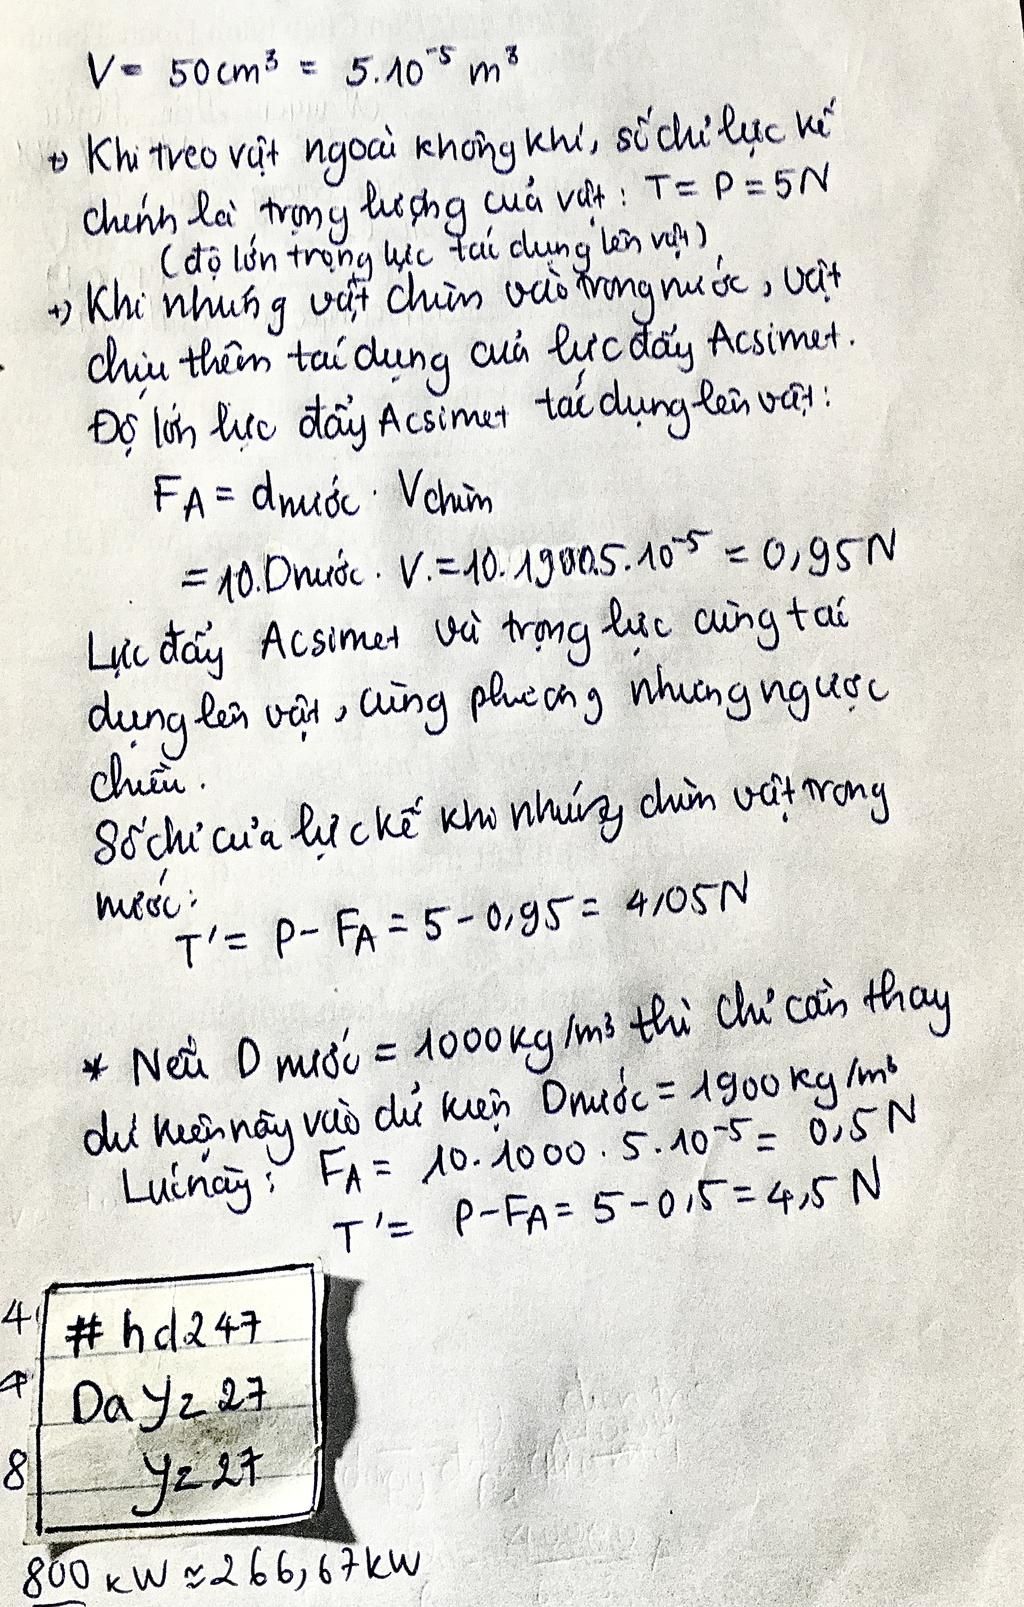 V = 50cm³ = 5.10⁻⁵ m³
+) Khi treo vật ngoài không khí, số chỉ lực kế
chính là trọng lượng của vật: T = P = 5N
(độ lớn trọng lực tác dụng lên vật)
+) Khi nhúng vật chìm vào trong nước, vật
chịu thêm tác dụng của lực đẩy Acsimet.
Độ lớn lực đẩy Acsimet tác dụng lên vật:
F_A = dnước . Vchìm
= 10.Dnước . V. = 10.1900.5.10⁻⁵ = 0,95N
Lực đẩy Acsimet và trọng lực cùng tác
dụng lên vật, cùng phương nhưng ngược
chiều.
Số chỉ của lực kế khi nhúng chìm vật trong
nước:
T' = P - F_A = 5 - 0,95 = 4,05N
* Nếu D nước = 1000kg/m³ thì chỉ cần thay
dữ kiện này vào dữ kiện Dnước = 1900kg/m³
Lúc này: F_A = 10.1000.5.10⁻⁵ = 0,5N
T' = P - F_A = 5 - 0,5 = 4,5N
4
#hd247
Dayz27
8
yz27
800 kW ≈ 266,67kW